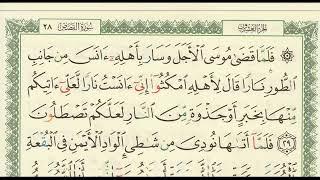 الجزء العشرون سورة القصص ٢٨
۞ فَلَمَّا قَضَىٰ مُوسَى ٱلْأَجَلَ وَسَارَ بِأَهْلِهِۦٓ ءَانَسَ مِن جَانِبِ
ٱلطُّورِ نَارًا قَالَ لِأَهْلِهِ ٱمْكُثُوٓا۟ إِنِّىٓ ءَانَسْتُ نَارًا لَّعَلِّىٓ ءَاتِيكُم
مِّنْهَا بِخَبَرٍ أَوْ جَذْوَةٍ مِّنَ ٱلنَّارِ لَعَلَّكُمْ تَصْطَلُونَ
٢٩ فَلَمَّآ أَتَىٰهَا نُودِىَ مِن شَـٰطِئِ ٱلْوَادِ ٱلْأَيْمَنِ فِى ٱلْبُقْعَةِ